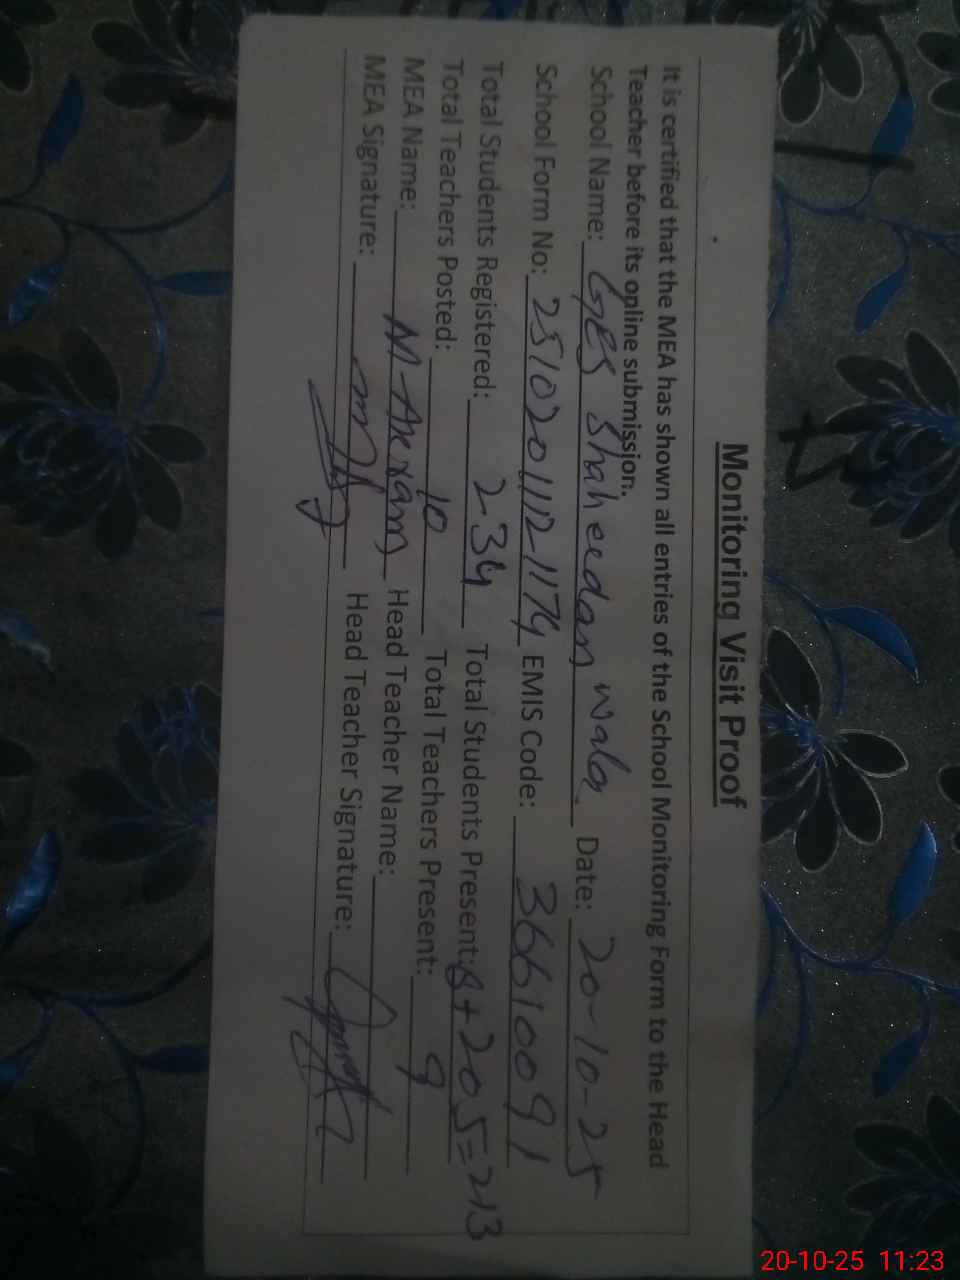 Monitoring Visit Proof
It is certified that the MEA has shown all entries of the School Monitoring Form to the Head
Teacher before its online submission.
School Name: GES Shaheedan wala Date: 20-10-25
School Form No: 25102011121174 EMIS Code: 36610091
Total Students Registered: 234 Total Students Present: 8+205=213
Total Teachers Posted: 10 Total Teachers Present: 9
MEA Name: M Akram Head Teacher Name:
MEA Signature: Head Teacher Signature:
20-10-25 11:23